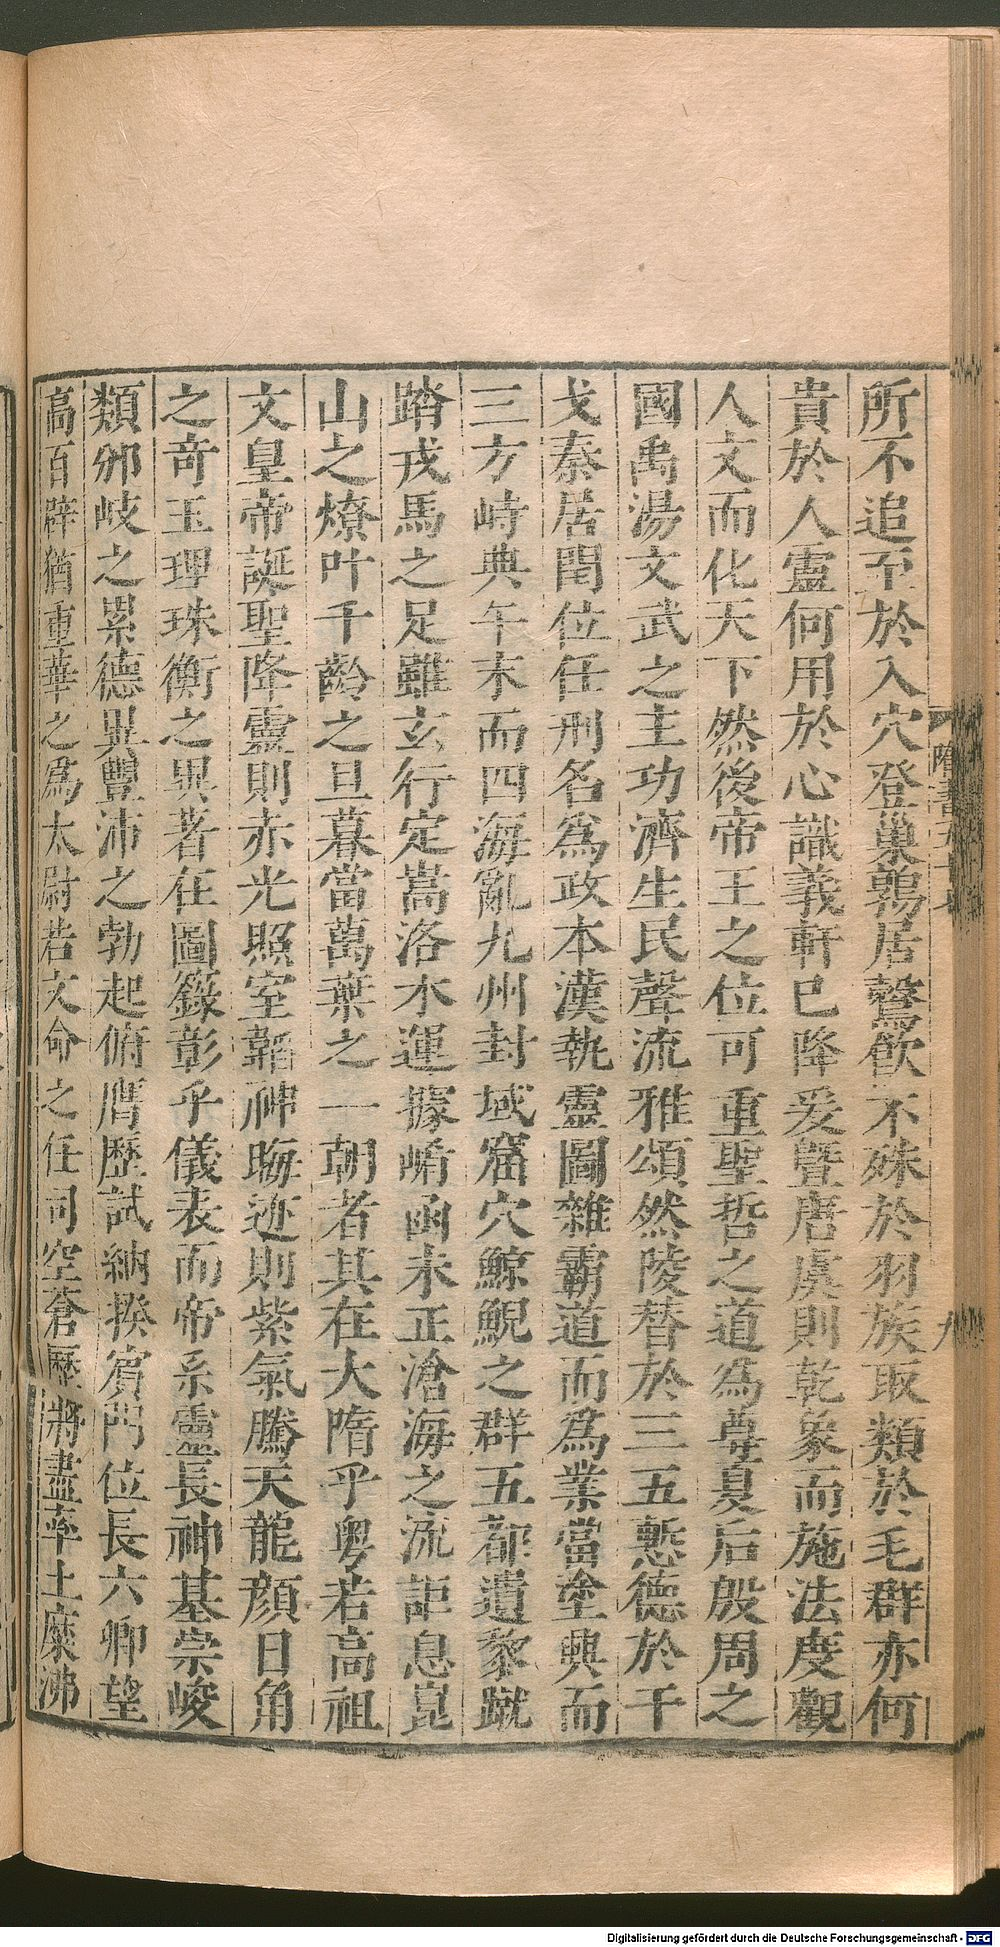 所不追至於入穴登巢鶉居鷇飲不殊於羽族取類於毛群亦何
貴於人靈何用於心識義軒已降爰暨唐虞則乾象而施法度觀
人文而化天下然後帝王之位可重聖哲之道為尊夏后殷周之
國禹湯文武之主功濟生民聲流雅頌然陵替於三五慙德於干
戈秦居閏位任刑名為政本漢執靈圖雜霸道而為業當塗興而
三方峙典午末而四海亂九州封域窟穴鯨鯢之群五都遺黎蹴
踏戎馬之足雖玄行定嵩洛木運據崤函未正滄海之流詎息崑
山之燎叶千齡之旦暮當萬葉之一朝者其在大隋乎粵若高祖
文皇帝誕聖降靈則赤光照室韜神晦迹則紫氣騰天龍顏日角
之奇玉理珠衡之異著在圖籙彰乎儀表而帝系靈長神基崇峻
類邠岐之累德異豐沛之勃起俯膺歷試納揆賓門位長六卿望
高百辟猶重華之為太尉若文命之任司空蒼歷將盡率土糜沸
隋書
九
Digitalisierung gefördert durch die Deutsche Forschungsgemeinschaft - DFG